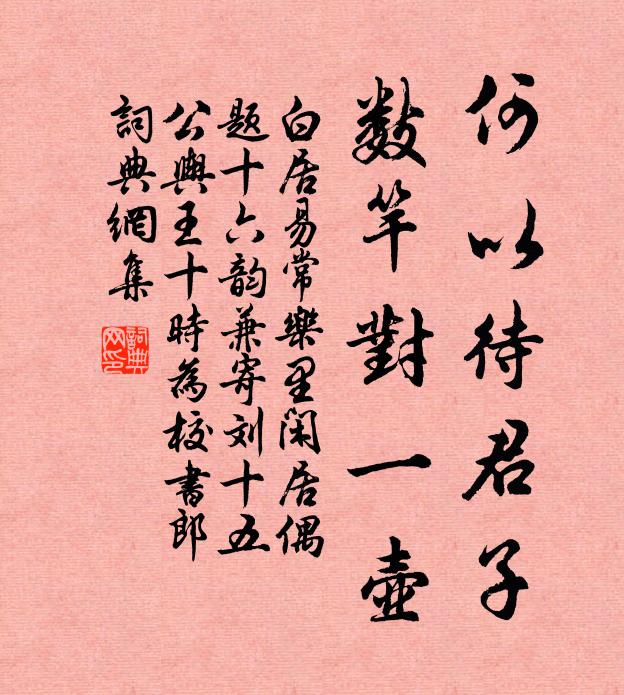 何以待君子
數竿對一壺
白居易常樂里閑居偶
題十六韵兼寄刘十五
公輿王十時為校書郎
詞典網集
詞典网印